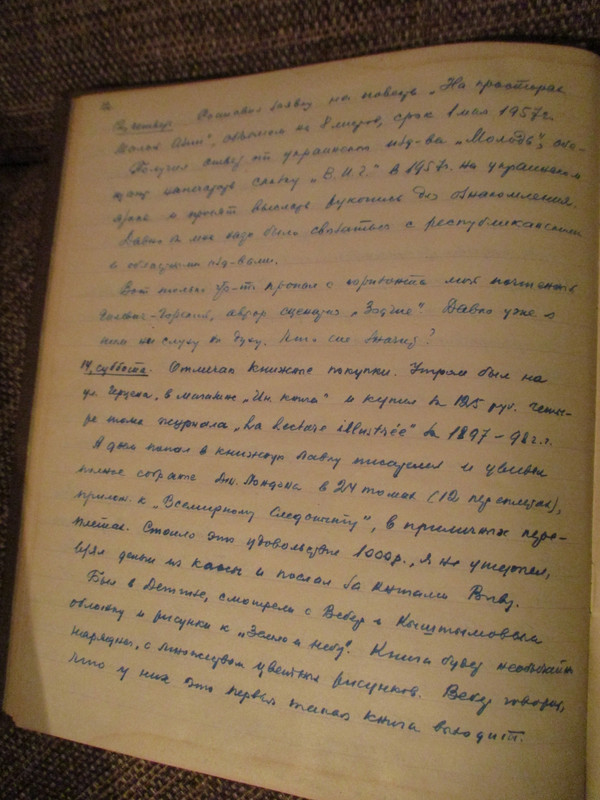 12, четверг. Составил заявку на повесть „На просторах
Малой Азии", объемом на 8 листов, срок 1 мая 1957 г.
Получил ответ от украинского изд-ва „Молодь", обе-
щают напечатать сказку „В.И.Г." в 1957 г. на украинском
языке и просят выслать рукопись для ознакомления.
Давно а мне надо было связаться с республиканскими
и областными изд-вами.
Вот только что-то пропал с горизонта мой почтенный
-Горский, автор сценария „Зодчие". Давно уже о
нем ни слуху ни духу. Что сие значит?
14, суббота. Отличные книжные покупки. Утром был на
ул. Герцена, в магазине „Ин. книга" и купил за 125 руб. четы-
ре тома журнала „La lecture illustrée" за 1897-98 г.г.
А днем попал в книжную лавку писателей и увидел
полное собрание Дж. Лондона в 24 томах (12 переплетах),
прилож. к „Всемирному Следопыту", в приличных пере-
плетах. Стоило это удовольствие 1000 р., я не утерпел,
взял деньги из кассы и послал за книгами
Был в Детгизе, смотрели с и
обложку и рисунки к „Земля и небо". Книга будет необычайно
нарядна, с множеством цветных рисунков. говорит,
что у них это первая такая книга выходит.